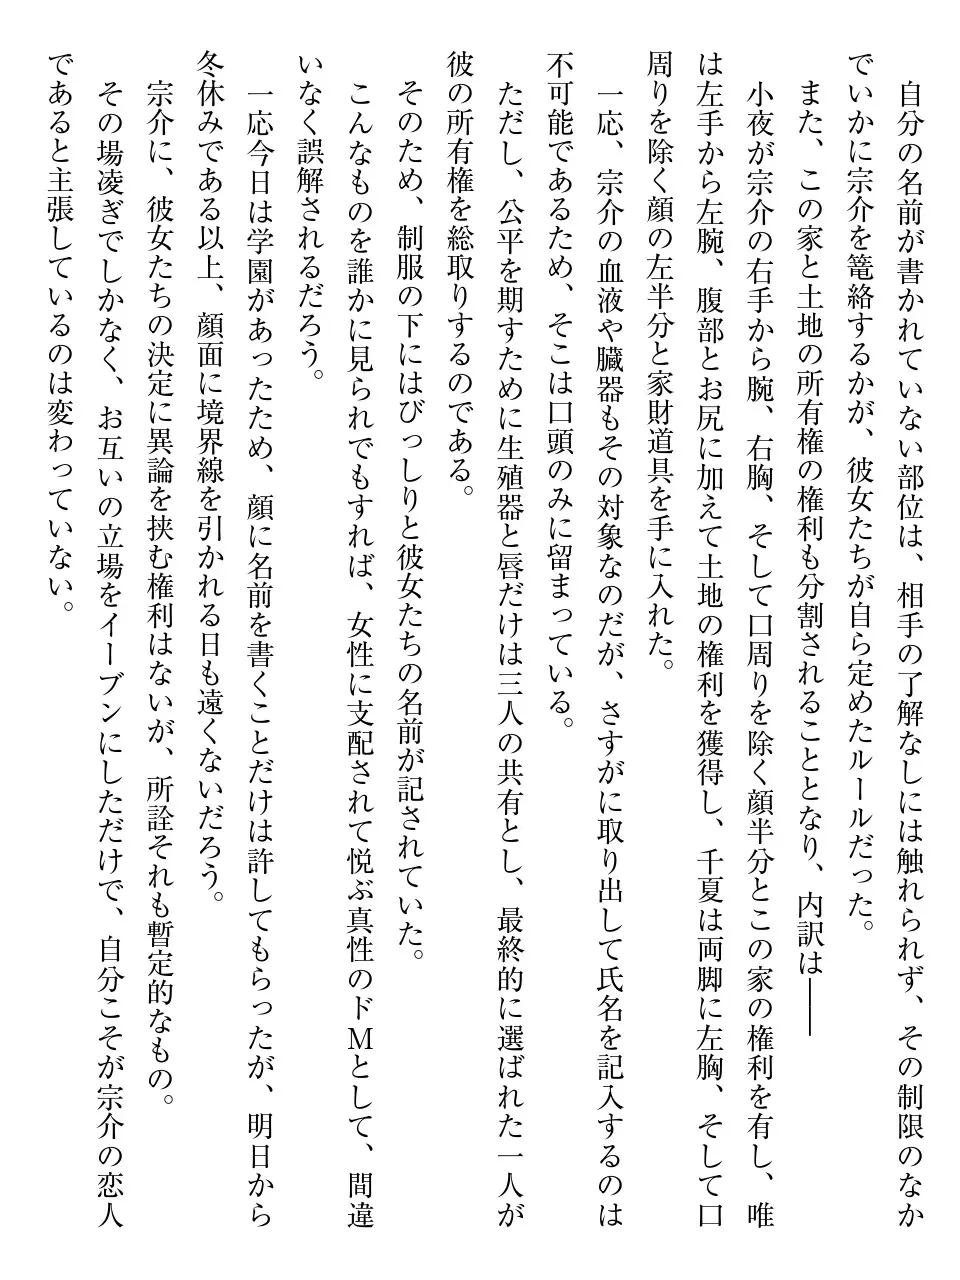 自分の名前が書かれていない部位は、相手の了解なしには触れられず、その制限のなか
でいかに宗介を篭絡するかが、彼女たちが自ら定めたルールだった。
また、この家と土地の所有権の権利も分割されることとなり、内訳は――
小夜が宗介の右手から腕、右胸、そして口周りを除く顔半分とこの家の権利を有し、唯
は左手から左腕、腹部とお尻に加えて土地の権利を獲得し、千夏は両脚に左胸、そして口
周りを除く顔の左半分と家財道具を手に入れた。
一応、宗介の血液や臓器もその対象なのだが、さすがに取り出して氏名を記入するのは
不可能であるため、そこは口頭のみに留まっている。
ただし、公平を期すために生殖器と唇だけは三人の共有とし、最終的に選ばれた一人が
彼の所有権を総取りするのである。
そのため、制服の下にはびっしりと彼女たちの名前が記されていた。
こんなものを誰かに見られでもすれば、女性に支配されて悦ぶ真性のドMとして、間違
いなく誤解されるだろう。
一応今日は学園があったため、顔に名前を書くことだけは許してもらったが、明日から
冬休みである以上、顔面に境界線を引かれる日も遠くないだろう。
宗介に、彼女たちの決定に異論を挟む権利はないが、所詮それも暫定的なもの。
その場凌ぎでしかなく、お互いの立場をイーブンにしただけで、自分こそが宗介の恋人
であると主張しているのは変わっていない。